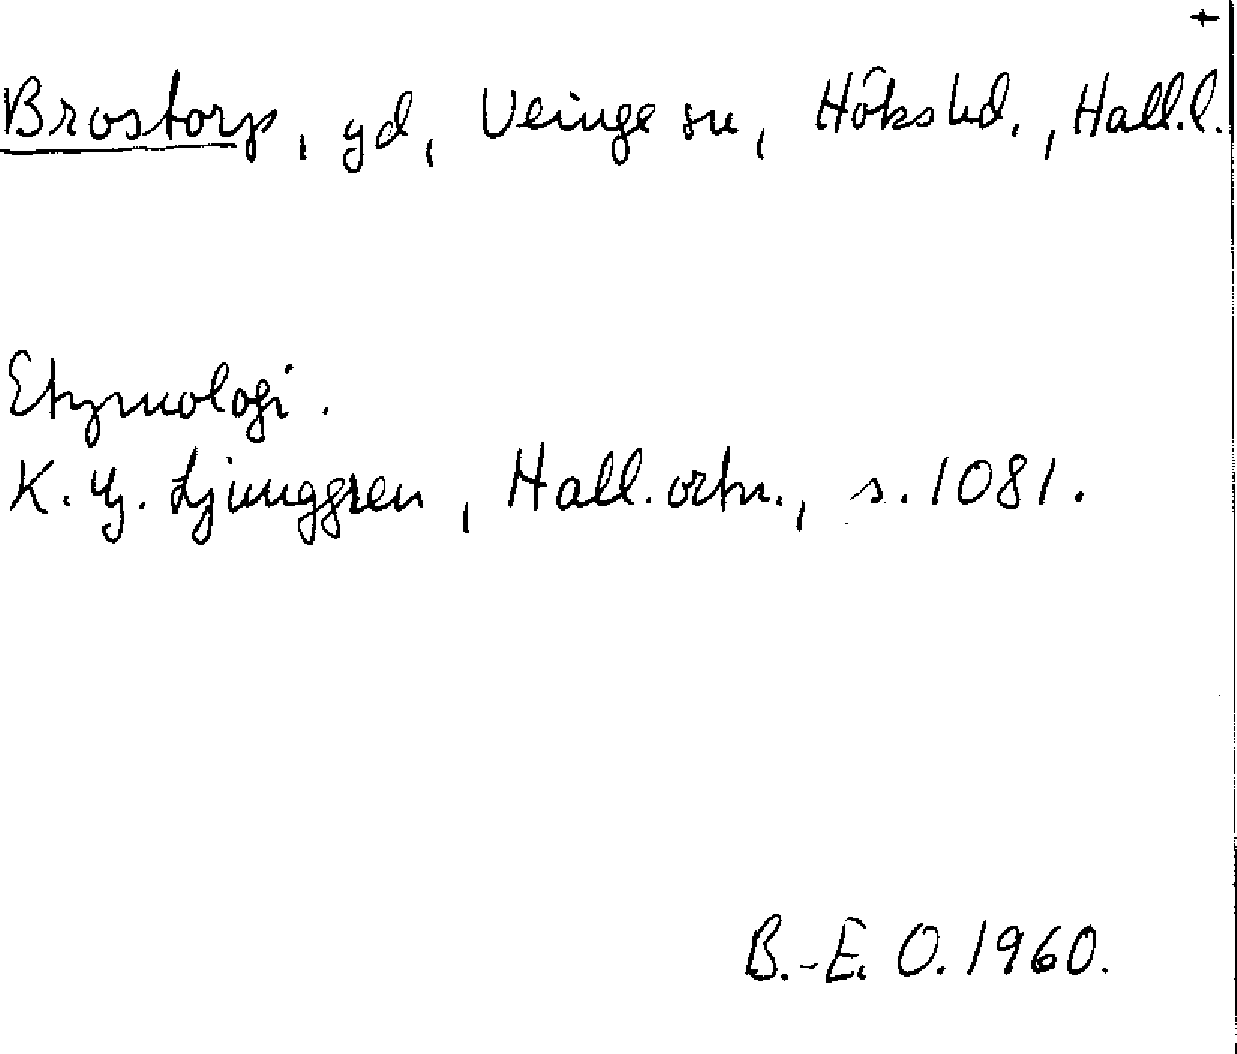 +
Brostorp, gd, Veinge sn, Höks hd., Hall.l.
Etymologi.
K. G. Ljunggren, Hall. ortn., s. 1081.
B.-E. O. 1960.